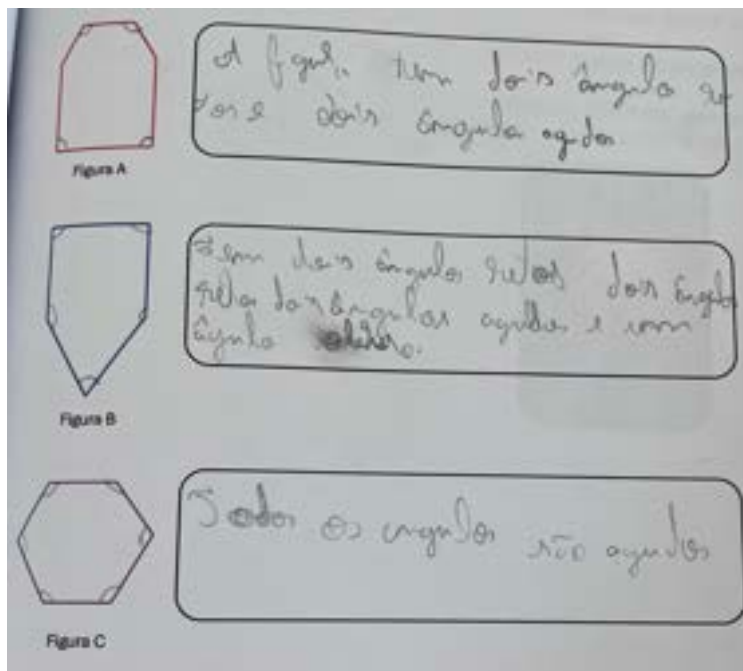 A figura tem dois ângulo re
tos e dois ângulo agudos.
Figura A
Tem dois ângulos retos dois ângulo
retos dois ângulos agudos e um
ângulo
Figura B
Todos os ângulos são agudos
Figura C